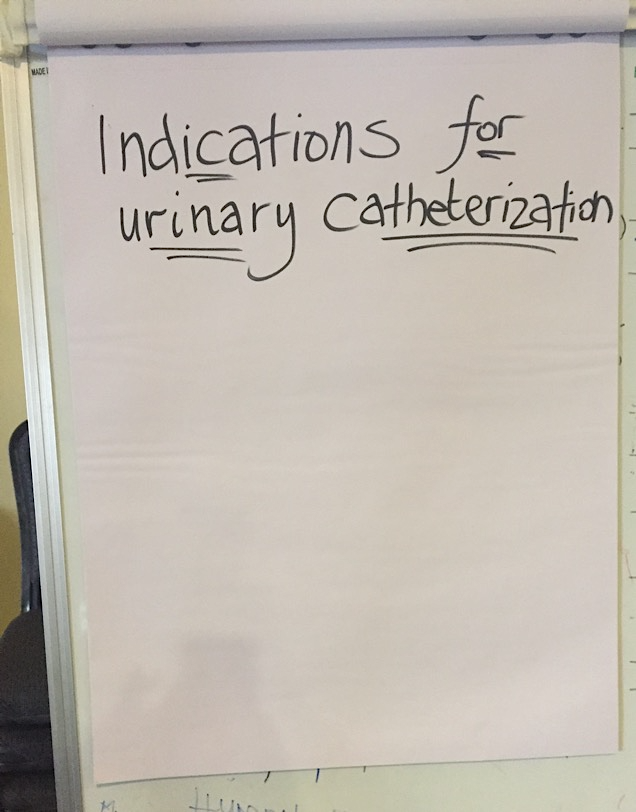 Indications for
urinary catheterization